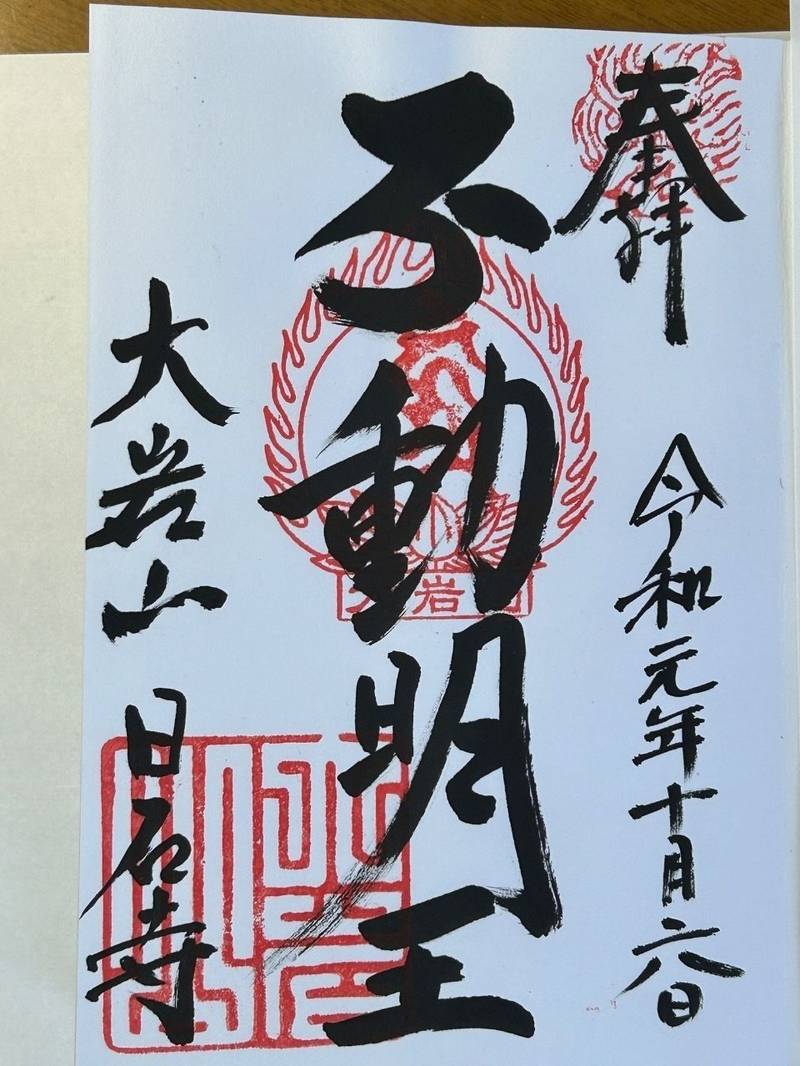 奉拝
令和元年十月六日
不動明王
大岩山 日石寺
大岩山